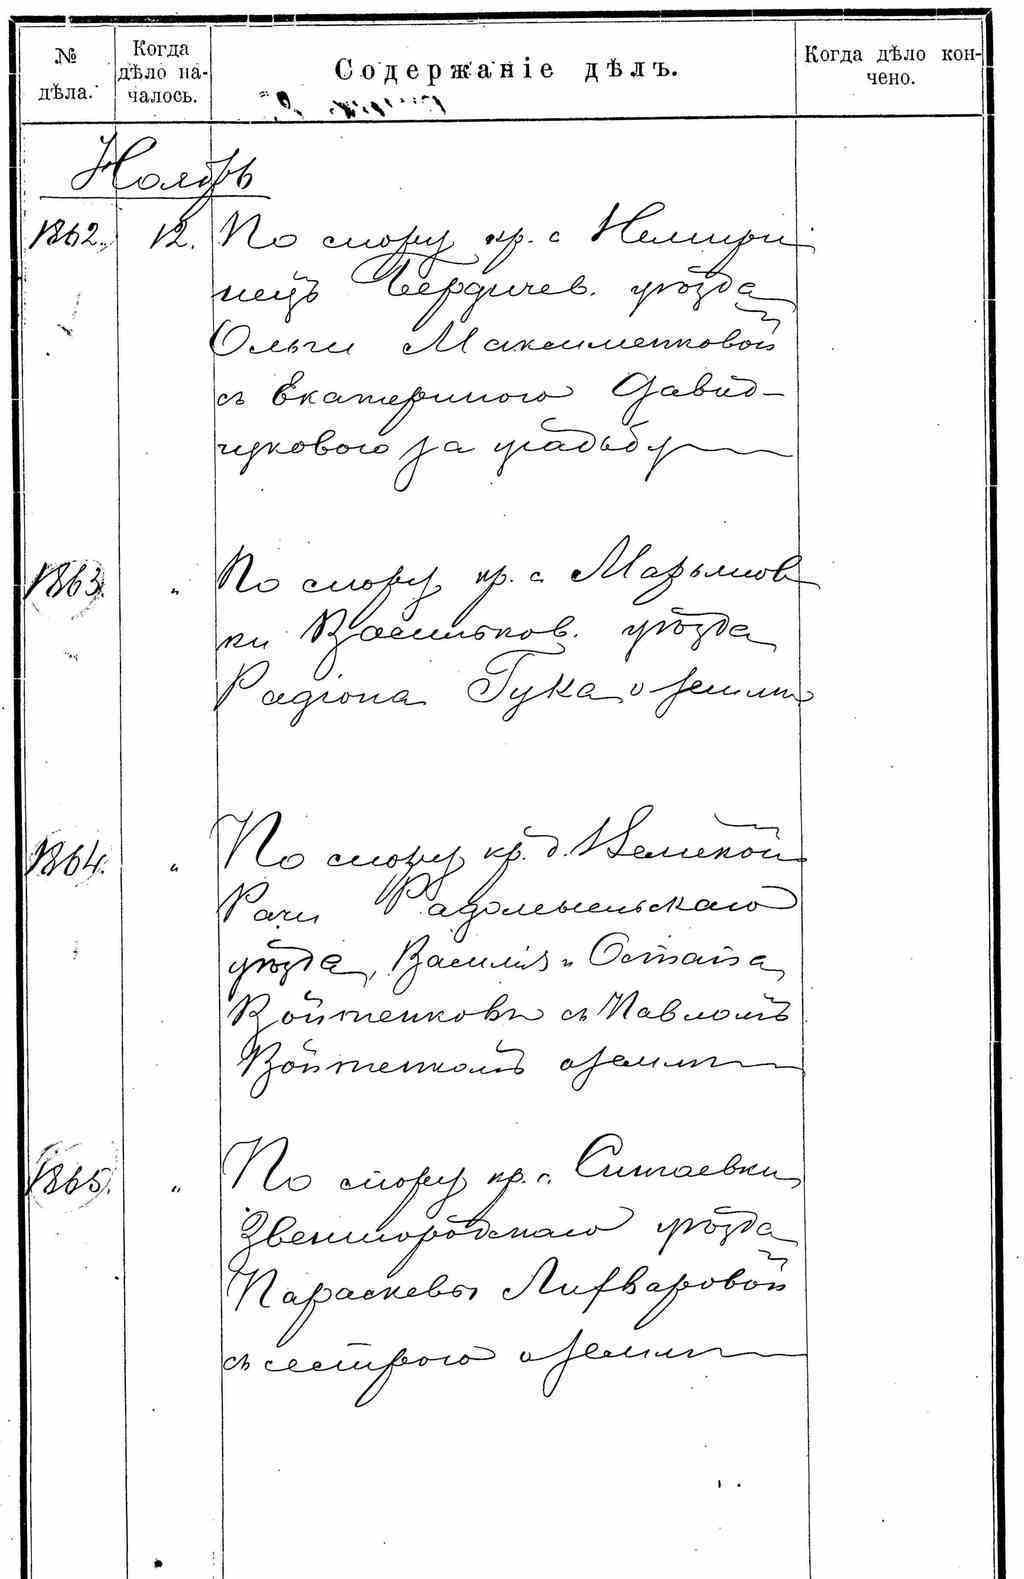 № дѣла.
Когда дѣло началось.
Содержаніе дѣлъ.
Когда дѣло кончено.
Ноябрь
1862. 12. По спору кр. с Немири
нецъ Бердичев. уѣзда
Ольги Максименковой
съ Екатериною Давид-
чуковою за усадьбу
1863. „ По спору кр. с. Марьянов
ки Васильков. уѣзда
Радіона Гука о землѣ
1864. „ По спору кр. д. Великой
Рачи Радомысльскаго
уѣзда, Василія и Остапа
Войтенковъ съ Павломъ
Войтенкомъ о землѣ
1865. „ По спору кр. с. Ситаевки
Звенигородскаго уѣзда
Параскевы Литваровой
съ сестрою о землѣ